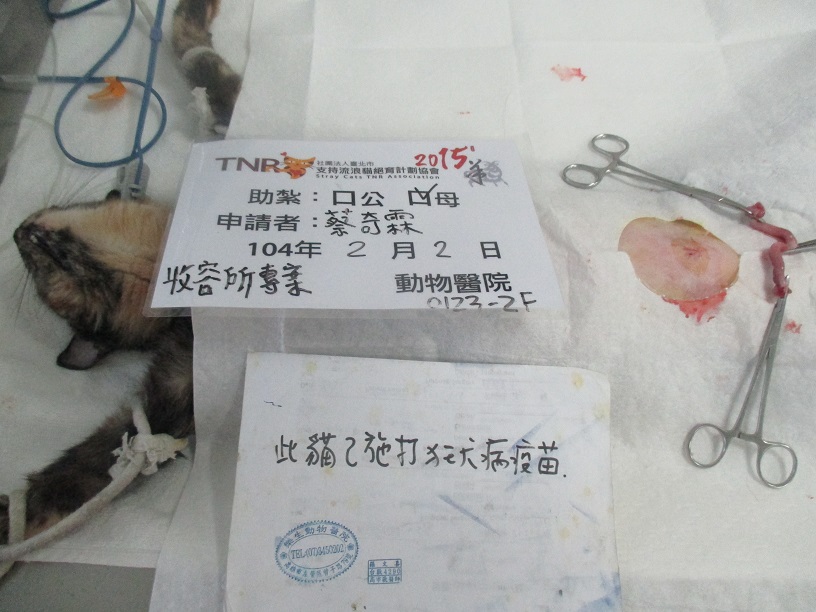 TNR 社團法人臺北市
支持流浪貓絕育計劃協會
Stray Cats TNR Association
2015'
助紮：口公 口母
申請者：蔡奇霖
104年 2 月 2 日
收容所專案 動物醫院
0123-2F
此貓已施打狂犬病疫苗.
TEL:(07)3450202